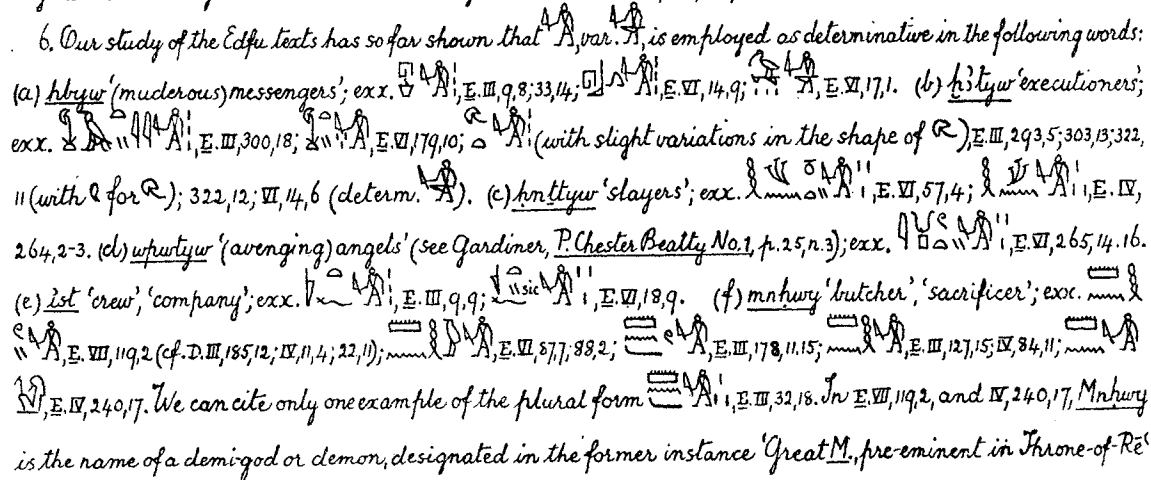 6. Our study of the Edfu texts has so far shown that , var. , is employed as determinative in the following words:
(a) hbyw '(muderous) messengers'; exx. , E. III, 9,8; 33,14; , E. VI, 14,9; , E. VI, 17,1. (b) ḫꜣtyw 'executioners';
exx. , E. III, 300,18; , E. VI, 179,10; (with slight variations in the shape of ), E. III, 293,5; 303,13; 322,
11 (with for ); 322,12; VI, 14,6 (determ. ). (c) ḥnttyw 'slayers'; exx. , E. VI, 57,4; , E. IV,
264,2-3. (d) wpwtyw '(avenging) angels' (see Gardiner, P. Chester Beatty No. 1, p. 25, n. 3); exx. , E. VI, 265,14.16.
(e) ist 'crew', 'company'; exx. , E. III, 9,9; sic , E. VI, 18,9. (f) mnḥwy 'butcher', 'sacrificer'; exx.
, E. VII, 119,2 (cf. D. III, 185,12; IV, 11,4; 22,11); , E. VI, 87,7; 88,2; , E. III, 178,11.15; , E. III, 127,15; IV, 84,11;
, E. IV, 240,17. We can cite only one example of the plural form , E. III, 32,18. In E. VII, 119,2, and IV, 240,17, Mnḥwy
is the name of a demi-god or demon, designated in the former instance 'Great M., pre-eminent in Throne-of-Rēꜥ